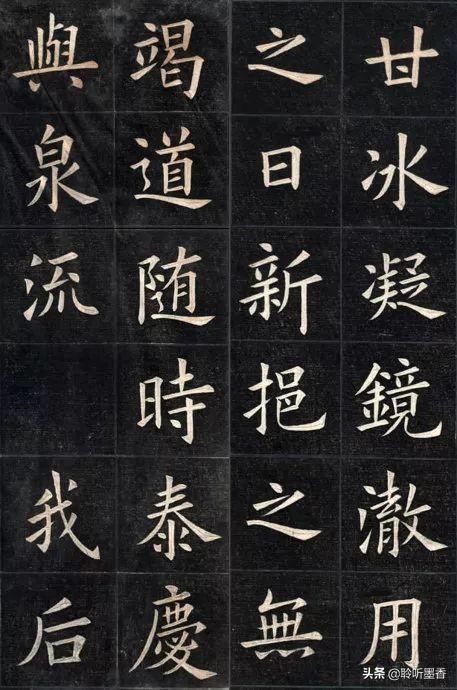 甘冰凝鏡澈用
之日新挹之無
竭道隨時泰慶
與泉流我后
头条@聆听墨香